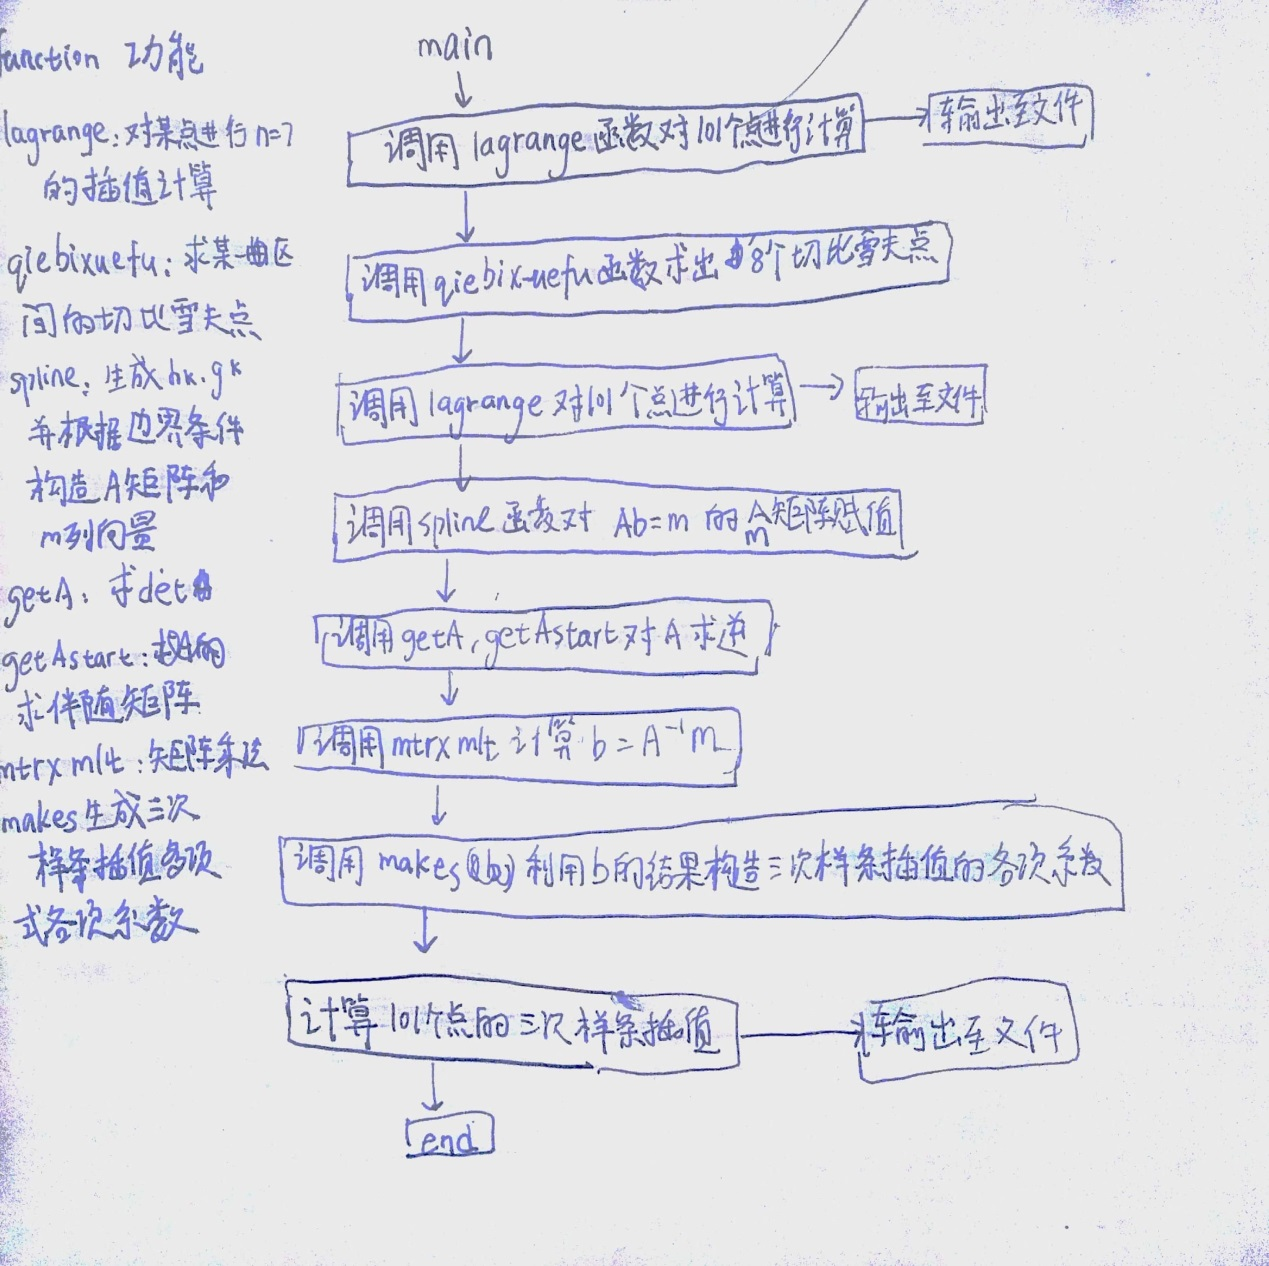 function 功能
lagrange: 对某点进行 n=7
的插值计算
qiebixuefu: 求某一区
间的切比雪夫点
spline: 生成 hk. gk
并根据边界条件
构造A矩阵和
m列向量
getA: 求det
getAstart:
求伴随矩阵
mtrx mlt: 矩阵乘法
makes 生成三次
样条插值多项
式各项系数
main
调用 lagrange 函数对 101个点进行计算
输出至文件
调用 qiebixuefu 函数求出 8个切比雪夫点
调用 lagrange 对101个点进行计算
输出至文件
调用 spline 函数对 Ab=m 的 A 矩阵赋值
m
调用 getA, getAstart 对 A 求逆
调用 mtrx mlt 计算 b = A⁻¹m
调用 makes 利用b的结果构造三次样条插值的各项系数
计算 101个点的三次样条插值
输出至文件
end